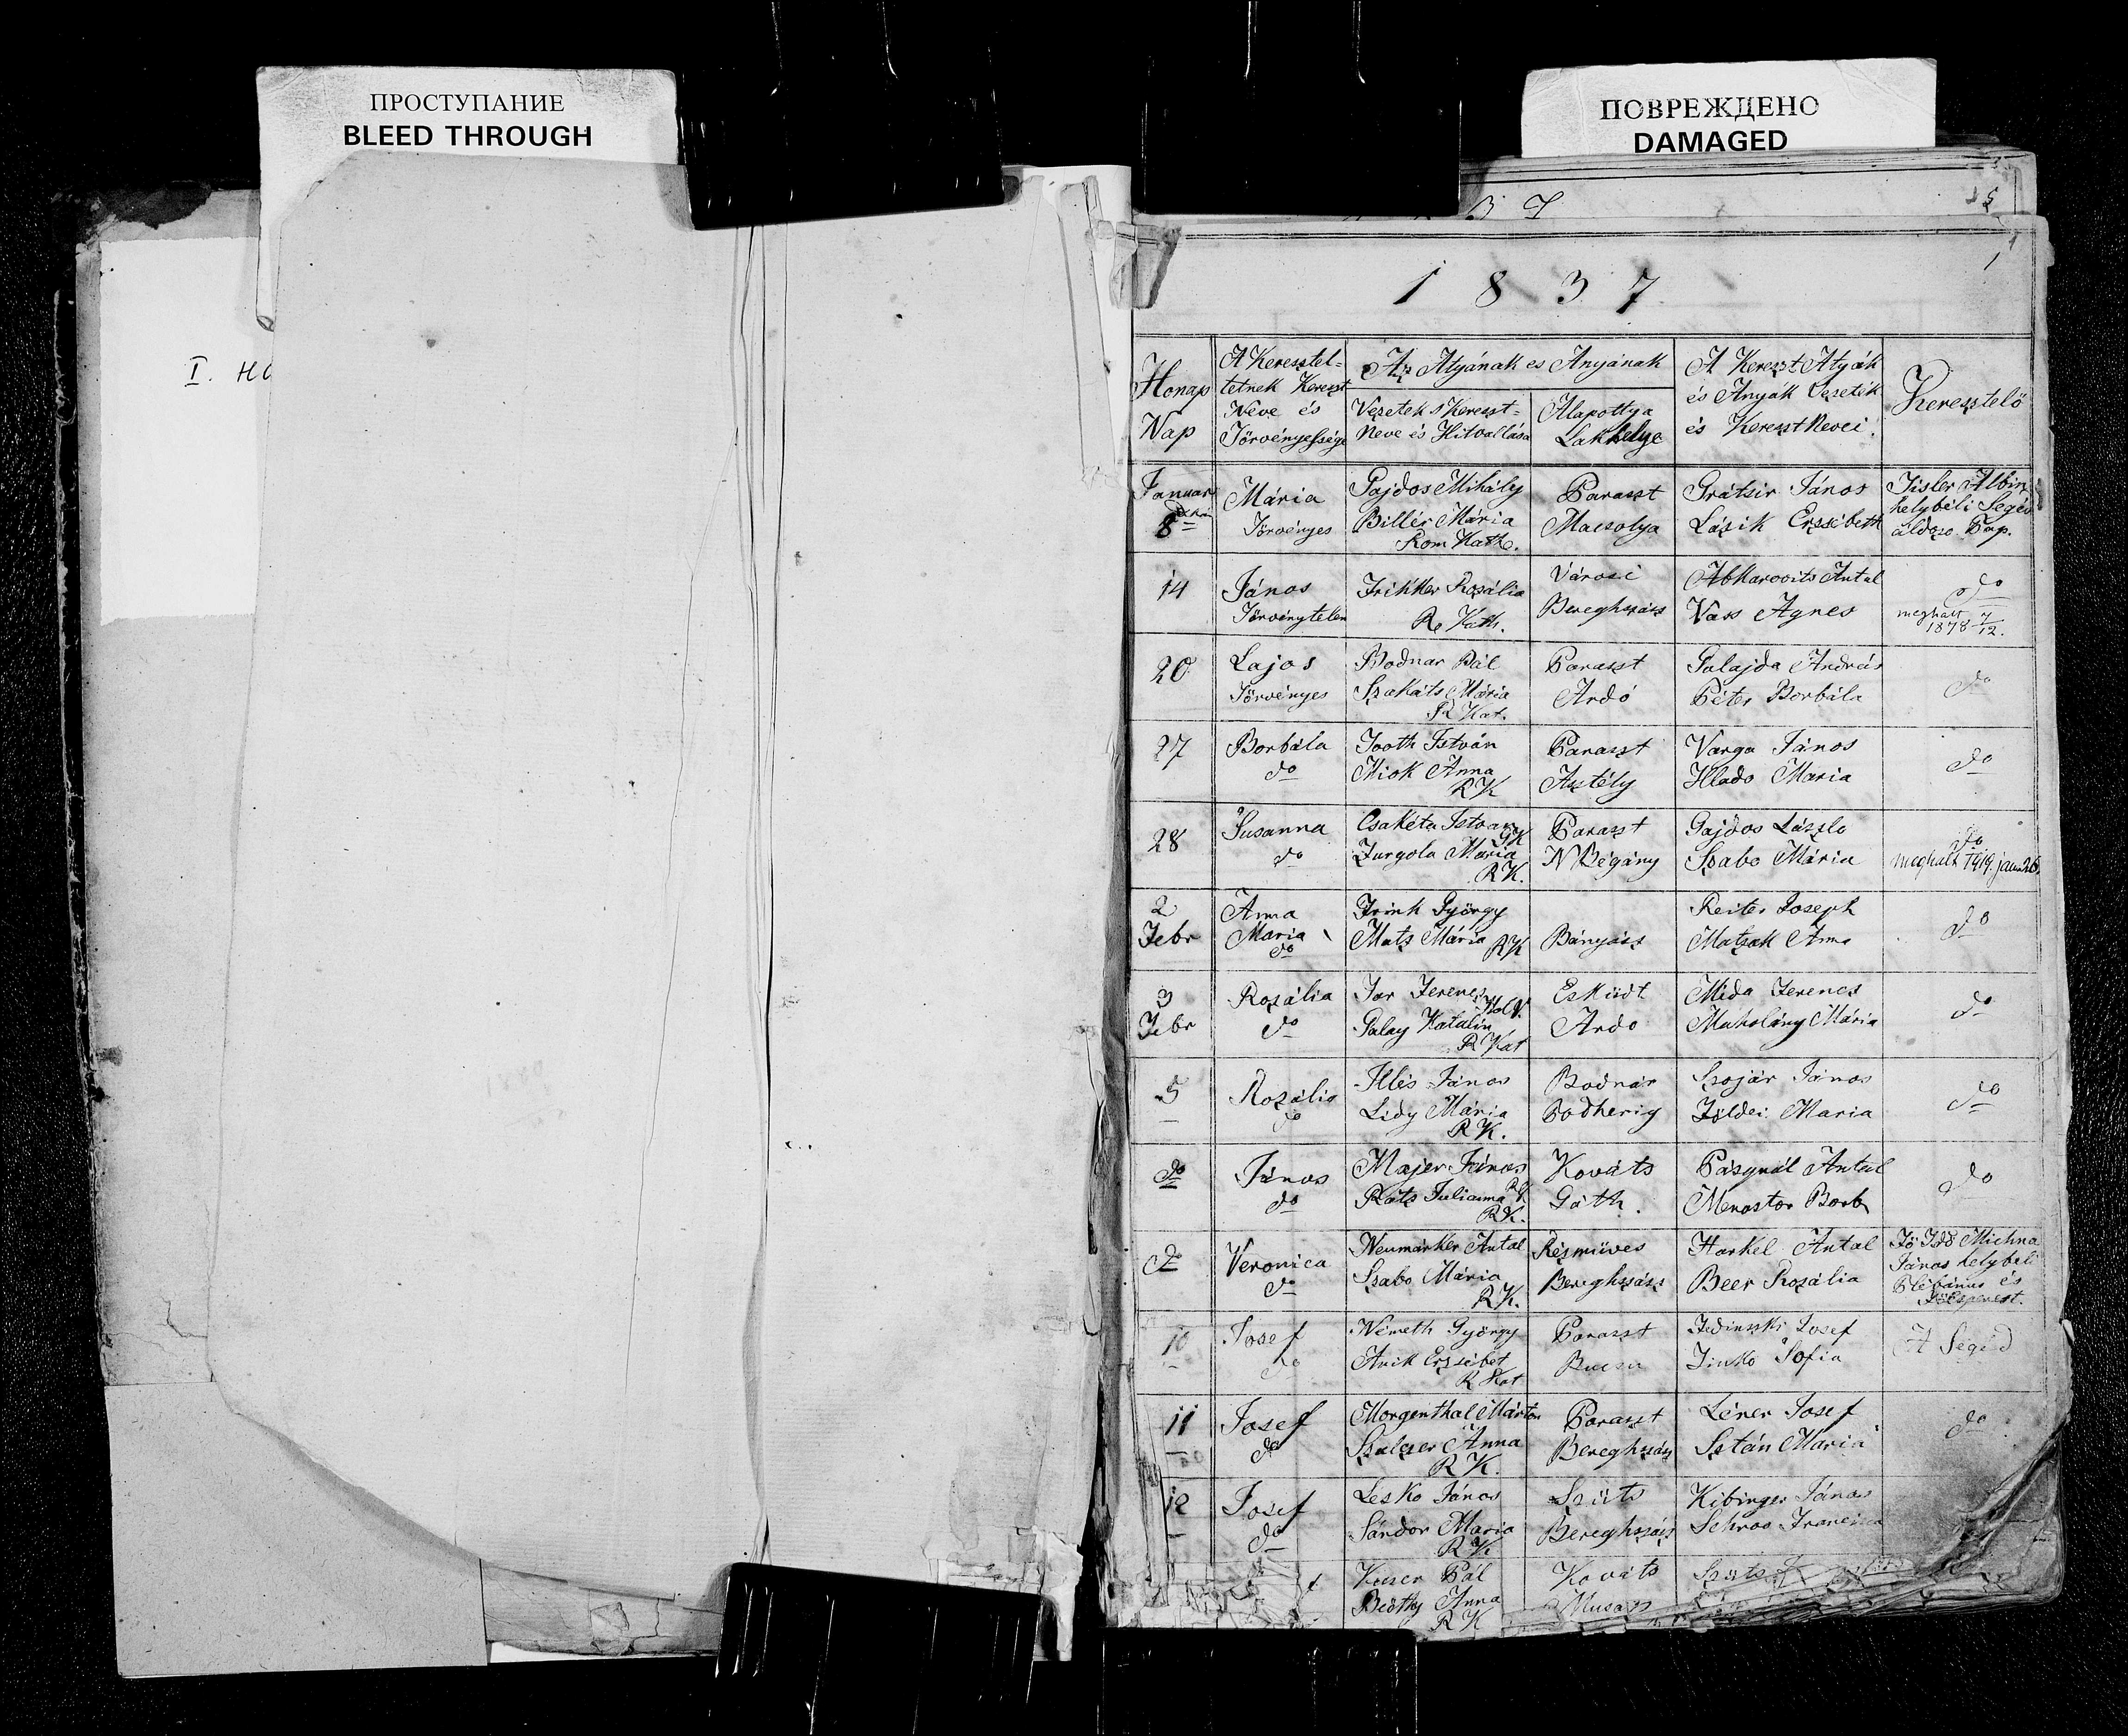 ПРОСТУПАНИЕ
BLEED THROUGH
ПОВРЕЖДЕНО
DAMAGED
I. НС
1
1 8 3 7
Honap
Nap
A Keresztel-
tetnek Kereszt
Neve és
Törvényessége
Az Atyának és Anyának
Vezetek s Kereszt-
Neve és Hitvallása
Alapottya
Lakhelye
A Kereszt Atyák
és Anyák Vezeték
és Kereszt Nevei.
Keresztelö
Januar
8
Mária
Törvényes
Gajdos Mihály
Billér Mária
Rom Kath.
Paraszt
Macsolya
Grátsir János
Lázik Erzsébeth
Tisler Albin
helybéli Segéd
áldozo Pap.
14
János
Törvénytelen
Frikker Rozália
R. Kath.
Városi
Bereghszász
Abkarovits Antal
Vass Agnes
do
meghalt
1878 7/12.
20
Lajos
Törvényes
Bodnar Pál
Szakáts Mária
R Kat.
Paraszt
Ardó
Galajda András
Péter Borbála
do
27
Borbála
do
Tooth István
Miok Anna
R K
Paraszt
Asztély
Varga János
Hlado Maria
do
28
Susanna
do
Csakéta Istvan
GK
Turgola Maria
RK.
Paraszt
N Bégány
Gajdos László
Szabo Mária
do
meghalt 1919. jan. 26.
2
Febr
Anna
Maria
do
Frink György
Mats Mária RK
Bányász
Reiter Joseph
Matzak Anna
do
3
Febr
Rozália
do
Jor Ferencz
Hel V.
Galay Katalin
R Kat
Esküdt
Ardo
Mida Ferencz
Muholány Mária
do
5
Rozália
do
Illés János
Lidy Mária
R K.
Bodnár
Podherig
Szojár János
Földei Maria
do
do
János
do
Majer János
Ráts Julianna
RK.
Kováts
Gáth.
Pásynál Antal
Menostor Borb
do
do
Veronica
do
Neumárker Antal
Szabo Mária
R K.
Rézmüves
Bereghszász
Harkel Antal
Beer Rozália
Fö Tszd Michna
János helybeli
Plébánus és
Fö Esperest.
10
Josef
do
Németh György
Anik Erzsébet
R Kat
Paraszt
Bucsu
Fedinszki Josef
Finko Sofia
A Segéd
11
Josef
do
Morgenthal Márton
Szulczer Anna
R K.
Paraszt
Bereghszász
Léner Josef
Sztán Maria
do
12
Josef
do
Lesko János
Sándor Maria
R K
Szüts
Bereghszász
Kibinger János
Schroo Francisca
Kuser Pál
Beothy Anna
R K
Kováts
Musaÿ
Szüts